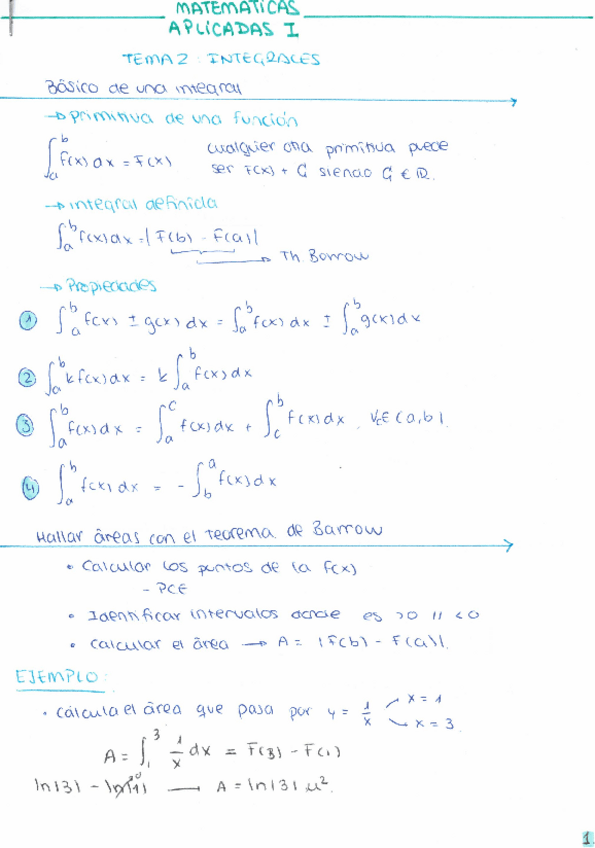 MATEMATICAS
APLICADAS I
TEMA 2 : INTEGRALES
Básico de una integral
→ primitiva de una función
∫_a^b f(x) dx = F(x) cualquier otra primitiva puede
ser F(x) + C siendo C ∈ ℝ.
→ integral definida
∫_a^b f(x) dx = |F(b) - F(a)|
→ Th. Barrow
→ Propiedades
① ∫_a^b f(x) ± g(x) dx = ∫_a^b f(x) dx ± ∫_a^b g(x) dx
② ∫_a^b k f(x) dx = k ∫_a^b f(x) dx
③ ∫_a^b f(x) dx = ∫_a^c f(x) dx + ∫_c^b f(x) dx , ∀c ∈ (a,b).
④ ∫_a^b f(x) dx = - ∫_b^a f(x) dx
Hallar áreas con el teorema de Barrow
• Calcular los puntos de la f(x)
- PCE
• Identificar intervalos donde es >0 || <0
• calcular el área → A = |F(b) - F(a)|.
EJEMPLO:
• calcula el área que pasa por y = 1/x x = 1
x = 3
A = ∫_1^3 1/x dx = F(3) - F(1)
ln|3| - ln|1| 0 → A = ln|3| u².
1.